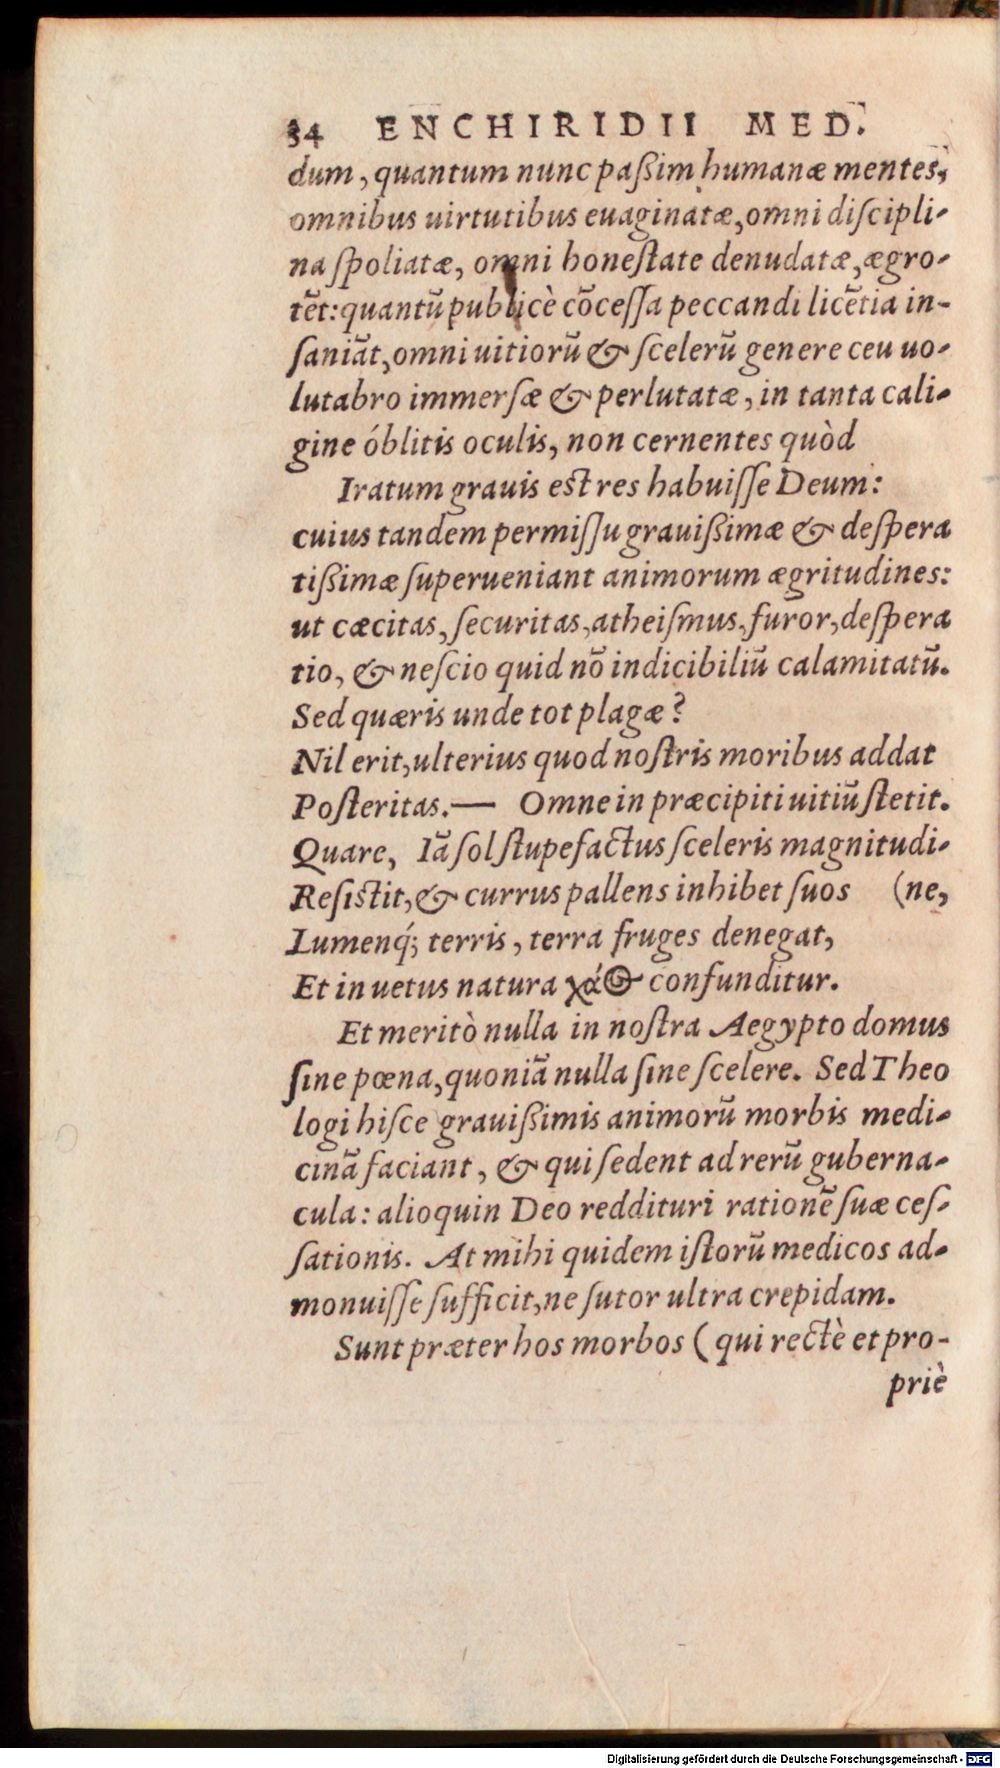 34 ENCHIRIDII MED.
dum, quantum nunc paßim humanæ mentes,
omnibus uirtutibus euaginatæ, omni diſcipli-
na ſpoliatæ, omni honeſtate denudatæ, ægro-
tēt: quantū publicè cōceſſa peccandi licētia in-
ſaniāt, omni uitiorū & ſcelerū genere ceu uo-
lutabro immerſæ & perlutatæ, in tanta cali-
gine óblitis oculis, non cernentes quòd
Iratum grauis est res habuiſſe Deum:
cuius tandem permiſſu grauißimæ & deſpera
tißimæ ſuperueniant animorum ægritudines:
ut cæcitas, ſecuritas, atheiſmus, furor, deſpera
tio, & neſcio quid nō indicibiliū calamitatū.
Sed quæris unde tot plagæ?
Nil erit, ulterius quod noſtris moribus addat
Poſteritas.— Omne in præcipiti uitiū ſtetit.
Quare, Iā ſol ſtupefactus ſceleris magnitudi-
Reſistit, & currus pallens inhibet ſuos (ne,
Lumenq́; terris, terra fruges denegat,
Et in uetus natura χά⊙ confunditur.
Et meritò nulla in noſtra Aegypto domus
ſine pœna, quoniā nulla ſine ſcelere. Sed Theo
logi hiſce grauißimis animorū morbis medi-
cinā faciant, & qui ſedent ad rerū guberna-
cula: alioquin Deo reddituri rationē ſuæ ceſ-
ſationis. At mihi quidem iſtorū medicos ad-
monuiſſe ſufficit, ne ſutor ultra crepidam.
Sunt præter hos morbos (qui rectè et pro-
priè
Digitalisierung gefördert durch die Deutsche Forschungsgemeinschaft - DFG